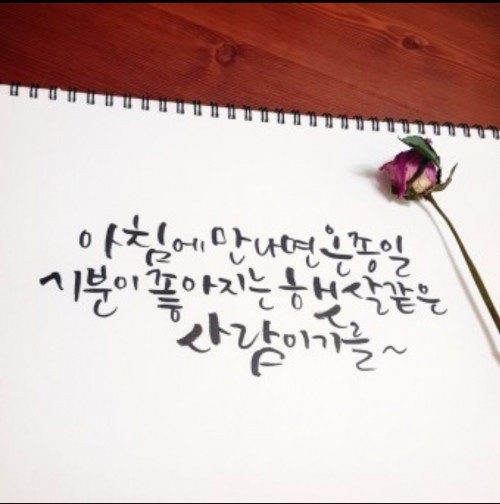 아침에 만나면 온종일
기분이 좋아지는 햇살같은
사람이기를~